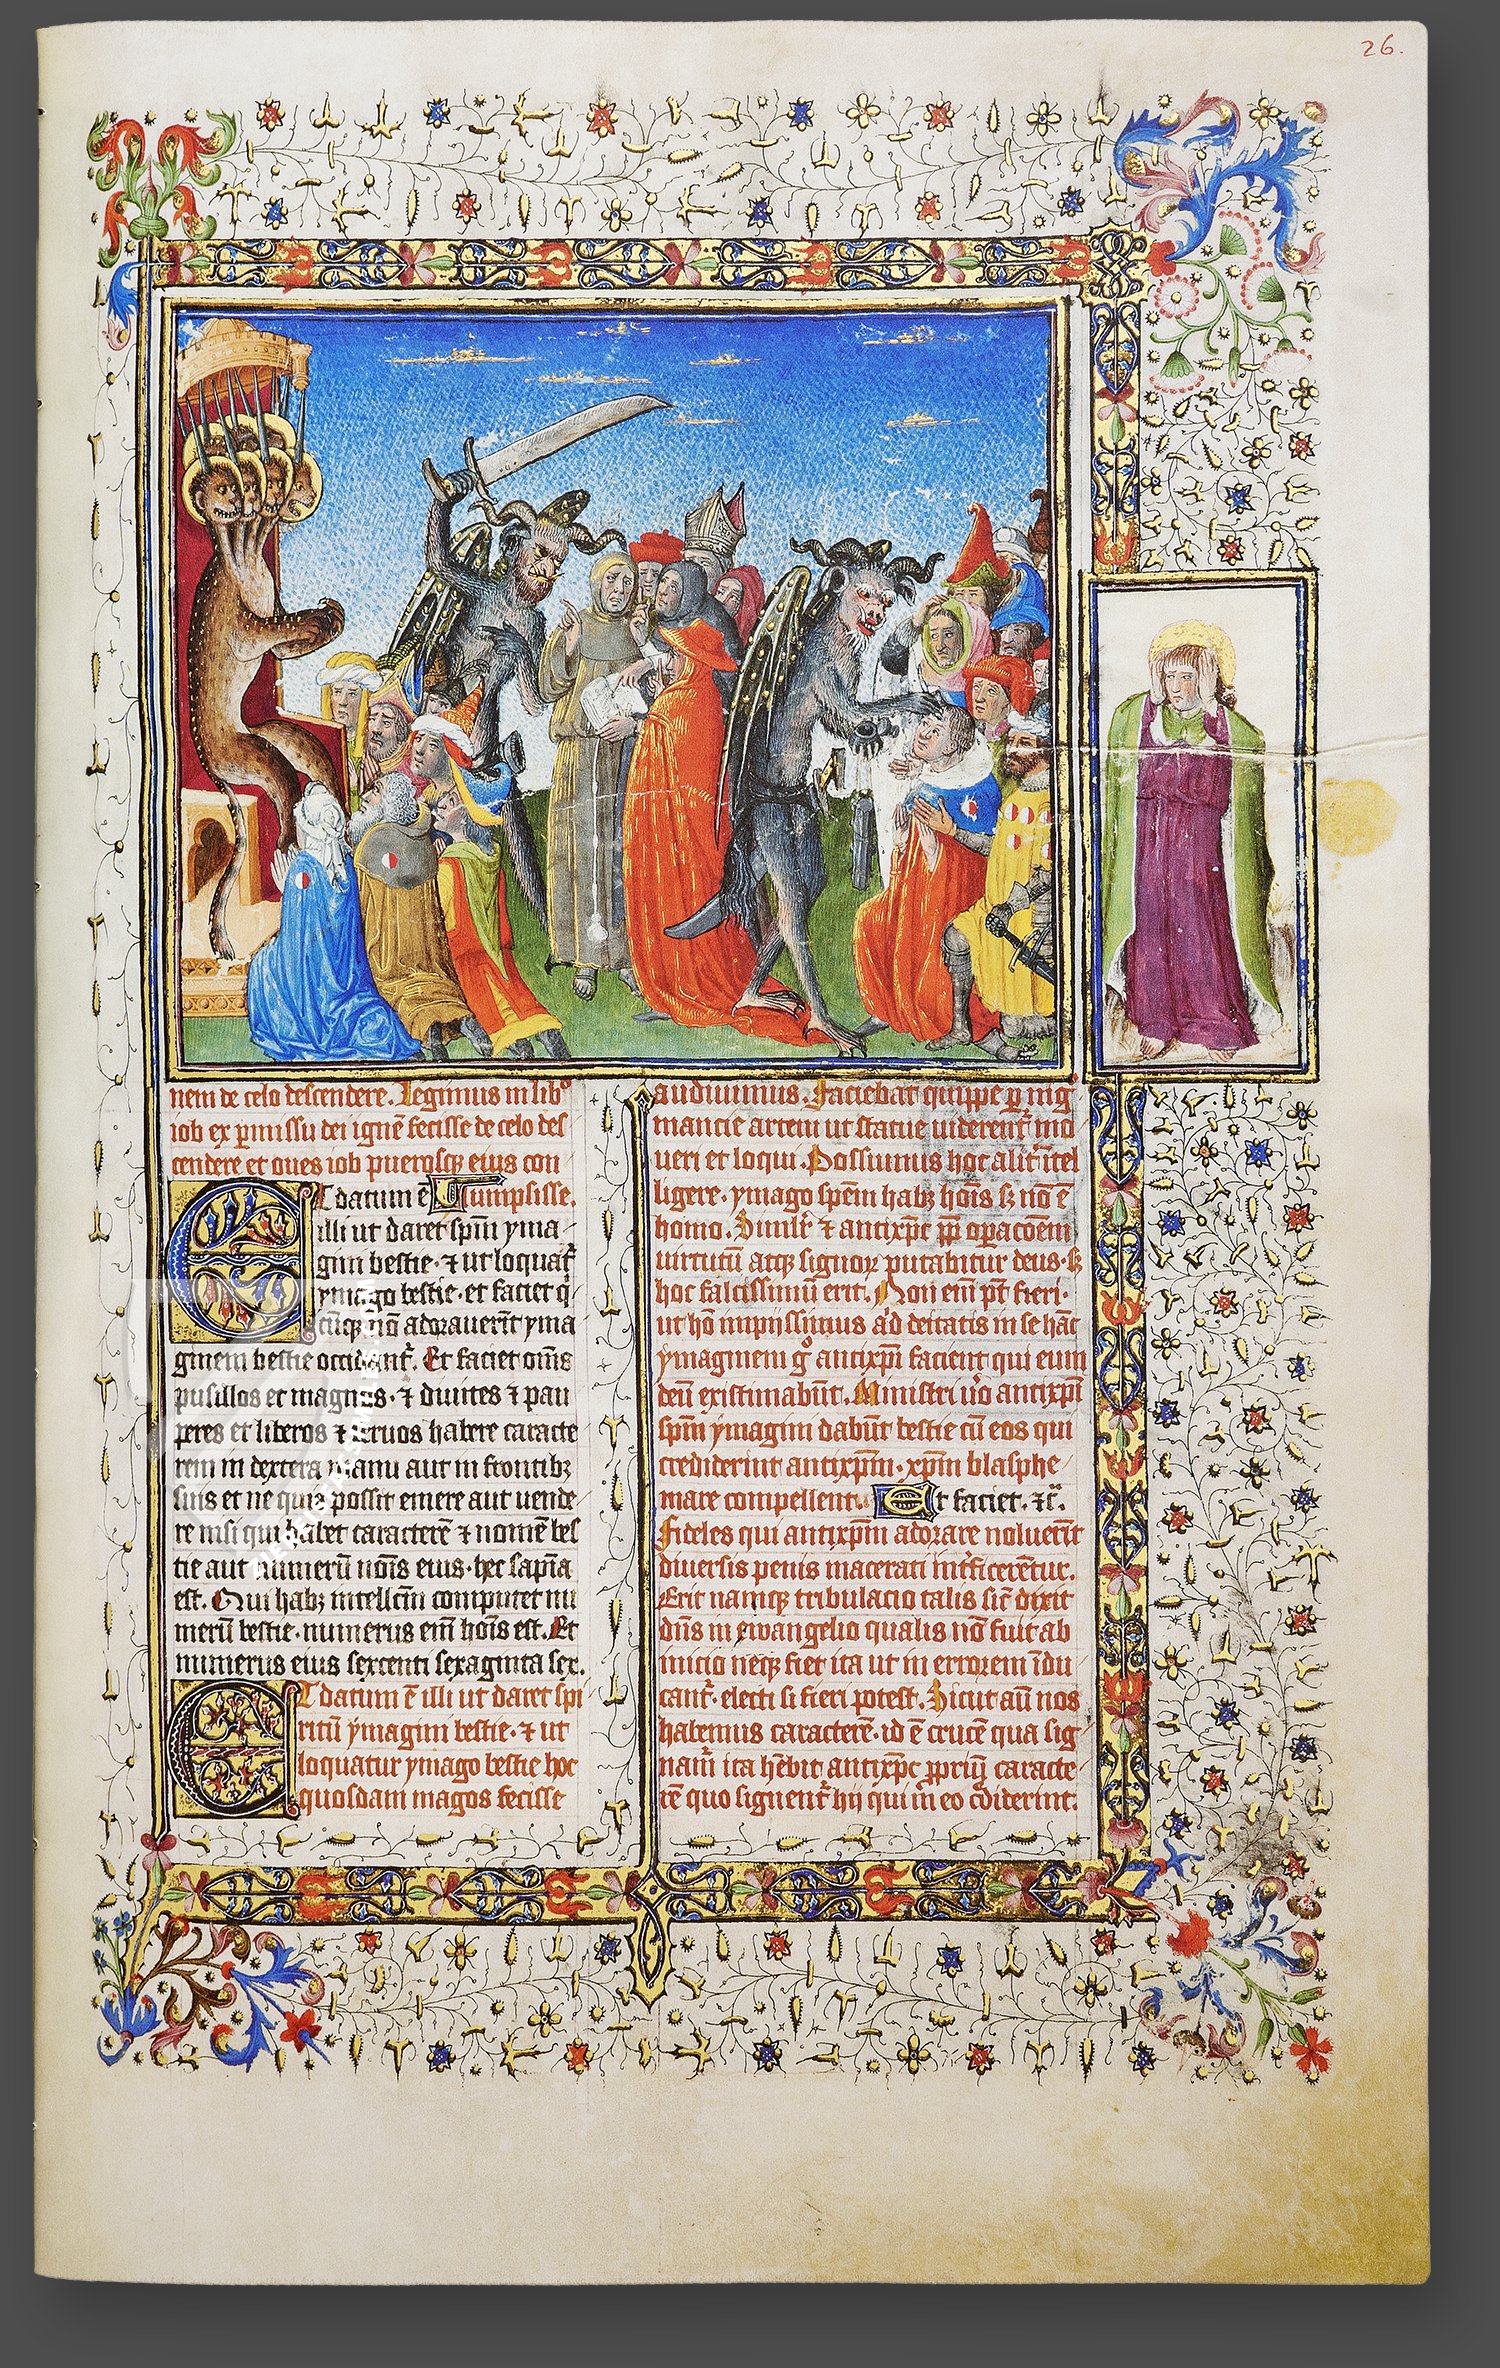 26.
nem de celo descendere. Legimus in lib°
iob ex ꝑmissu dei ignē fecisse de celo des
cendere et oues iob puerosqꝫ eius con
sumpsisse.
Et datum ē
illi ut daret spm̄ yma
gini bestie · ⁊ ut loquat᷑
ymago bestie · et faciet q̇
cūqꝫ nō adorauerīt yma
ginem bestie occidant᷑. Et faciet om̄s
pusillos et magnos · ⁊ diuites ⁊ pau
peres et liberos ⁊ seruos habere caracte
rem in dextera manu aut in frontibꝫ
suis et ne quis possit emere aut uende
re nisi qui habet caracterē ⁊ nomē bes
tie aut numerū nōis eius · hec sapīa
est. Qui habꝫ intellc̄m computet nu
merū bestie · numerus em̄ hōis est. Et
numerus eius sexcenti sexaginta sex.
Et datum ē illi ut daret spi
ritū ymagini bestie · ⁊ ut
loquatur ymago bestie hoc
quosdam magos fecisse
audiuimus. Faciebat quippe ꝑ nig̊
mancie artem ut statue uiderent᷑ mo
ueri et loqui. Possumus hoc alit᷑ ītel
ligere. ymago spēm habꝫ hōis sꝫ nō ē
homo. Similr̄ ⁊ antixp̄c ꝓp̄ oꝑacōem
uirtutū atqꝫ signoꝝ putabitur deus · sꝫ
hoc falcissimū erit. Non em̄ pt̄ fieri ·
ut hō impijssimus a'd deitatis in se hāt
ymaginem g° antixp̄i facient qui eum
deū existimabūt. Ministri u°o antixp̄i
spm̄ ymagini dabūt bestie cū eos qui
crediderint antixp̄m · xp̄m blasphe
mare compellent. Et faciet · ⁊c̄.
Fideles qui antixp̄m adorare noluerīt
diuersis penis macerati int᷑ficerētur.
Erit namqꝫ tribulacio talis sic̄ dixit
dn̄s in ewangelio qualis nō fuit ab
inicio neqꝫ fiet ita ut in errorem īdu
cant᷑ · electi si fieri potest. Sicut aūt nos
habemus caracterē · id ē crucē qua sig
nam᷑ ita hēbit antixp̄c ꝓpriū caracte
rē quo signent᷑ hij qui in eo c̄diderint.